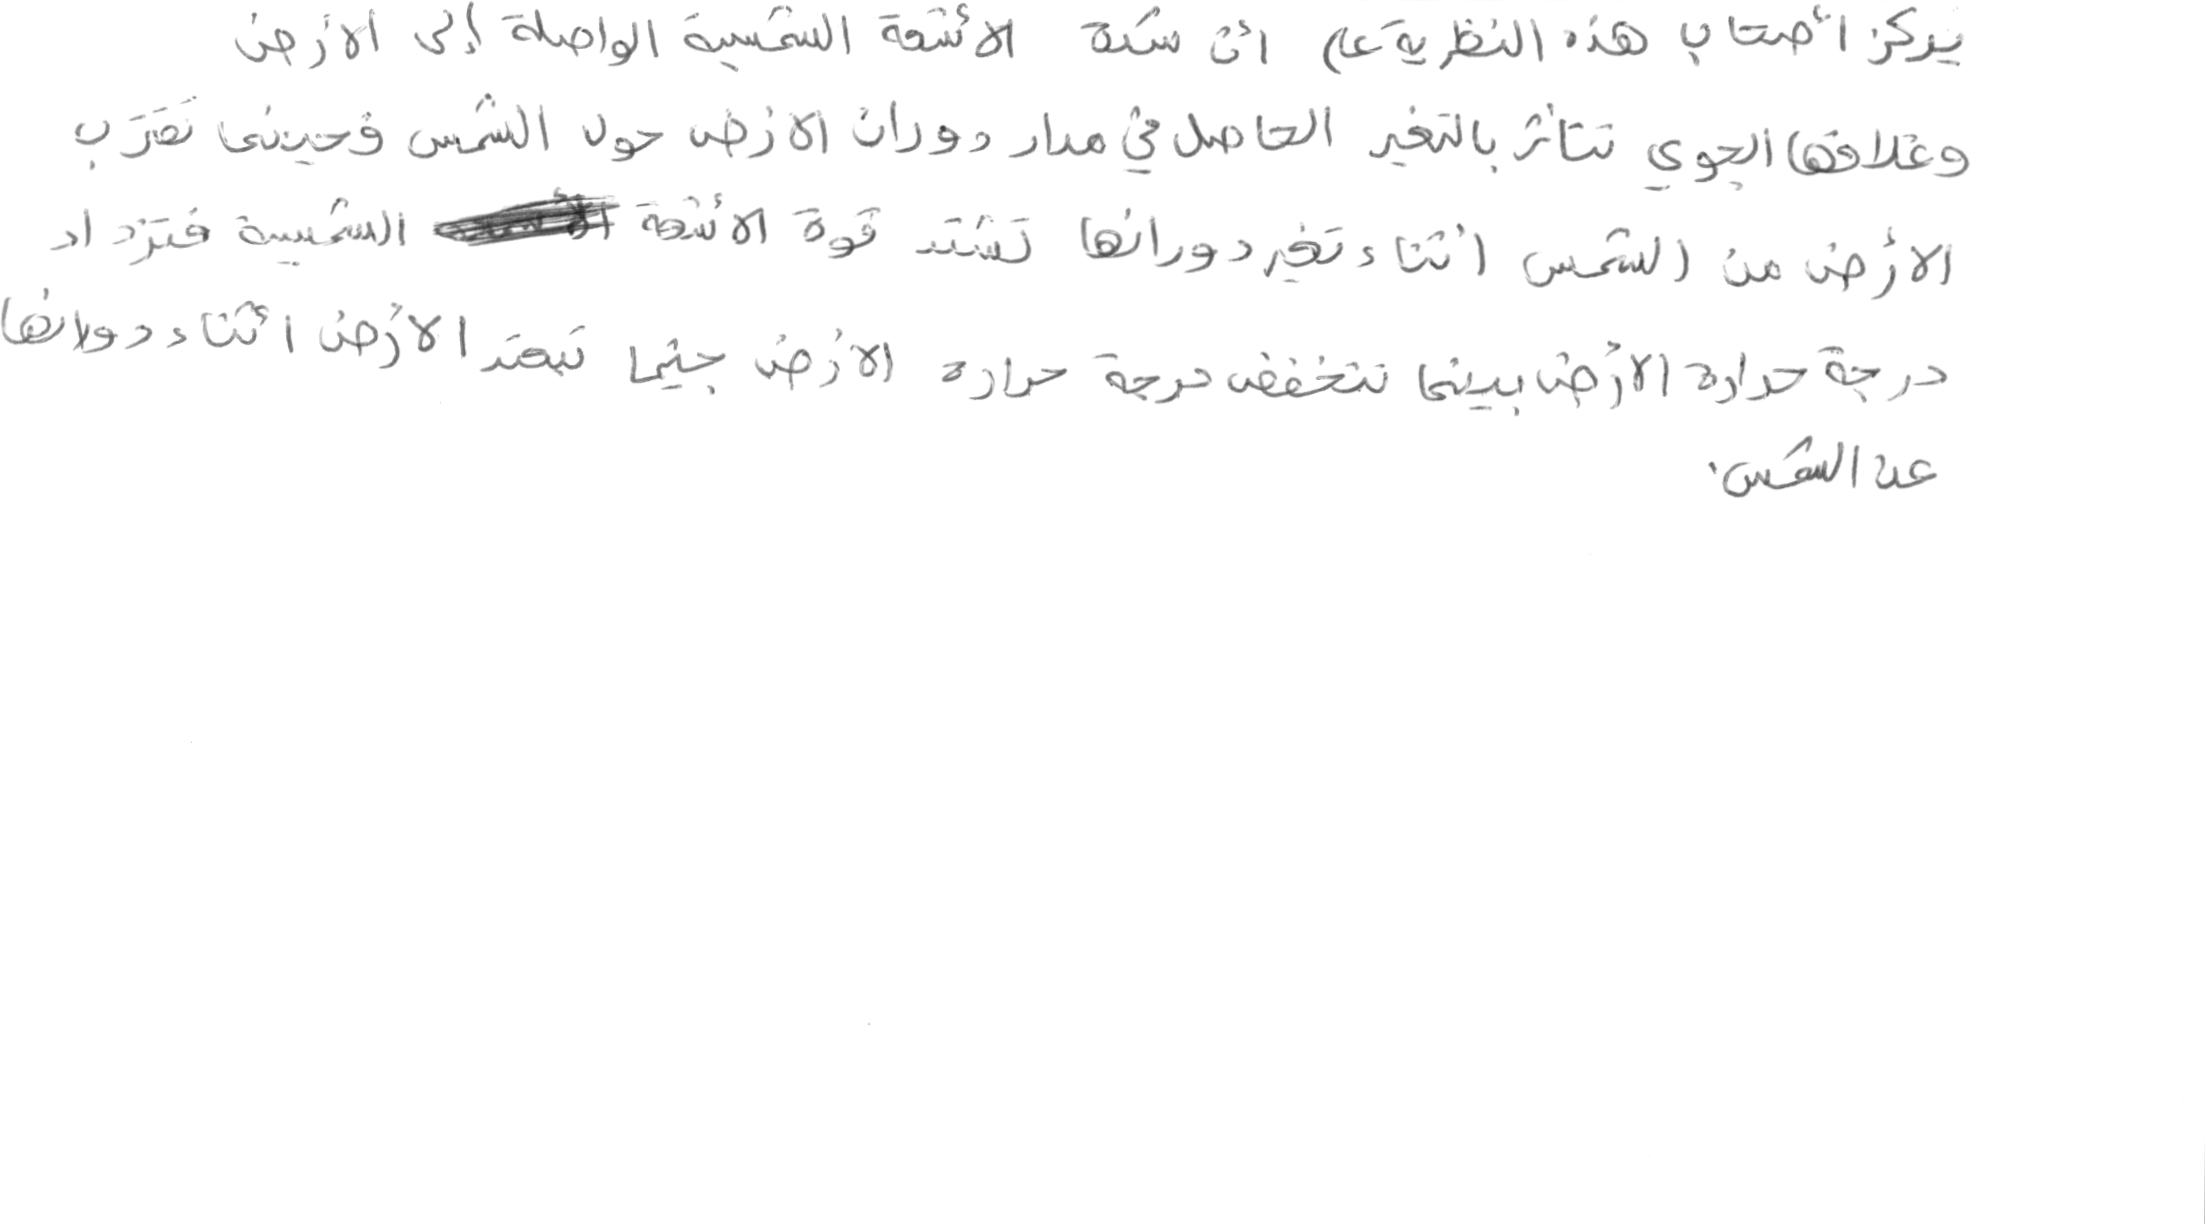 يركز أصحاب هذه النظرية على أن شدة الأشعة الشمسية الواصلة إلى الأرض
وغلافها الجوي تتأثر بالتغير الحاصل في مدار دوران الأرض حول الشمس فحينما تقترب
الأرض من الشمس أثناء تغير دورانها تشتد قوة الأشعة الشمسية فتزداد
درجة حرارة الأرض بينما تنخفض درجة حرارة الأرض حينما تبتعد الأرض أثناء دورانها
عن الشمس.